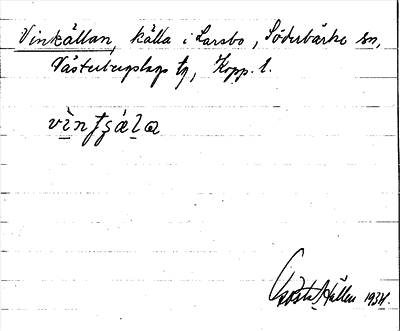 Vinkällan, källa i Larsbo, Söderbärke sn,
Västerbergslags tg, Kopp. l.
Gösta Hållen 1934.